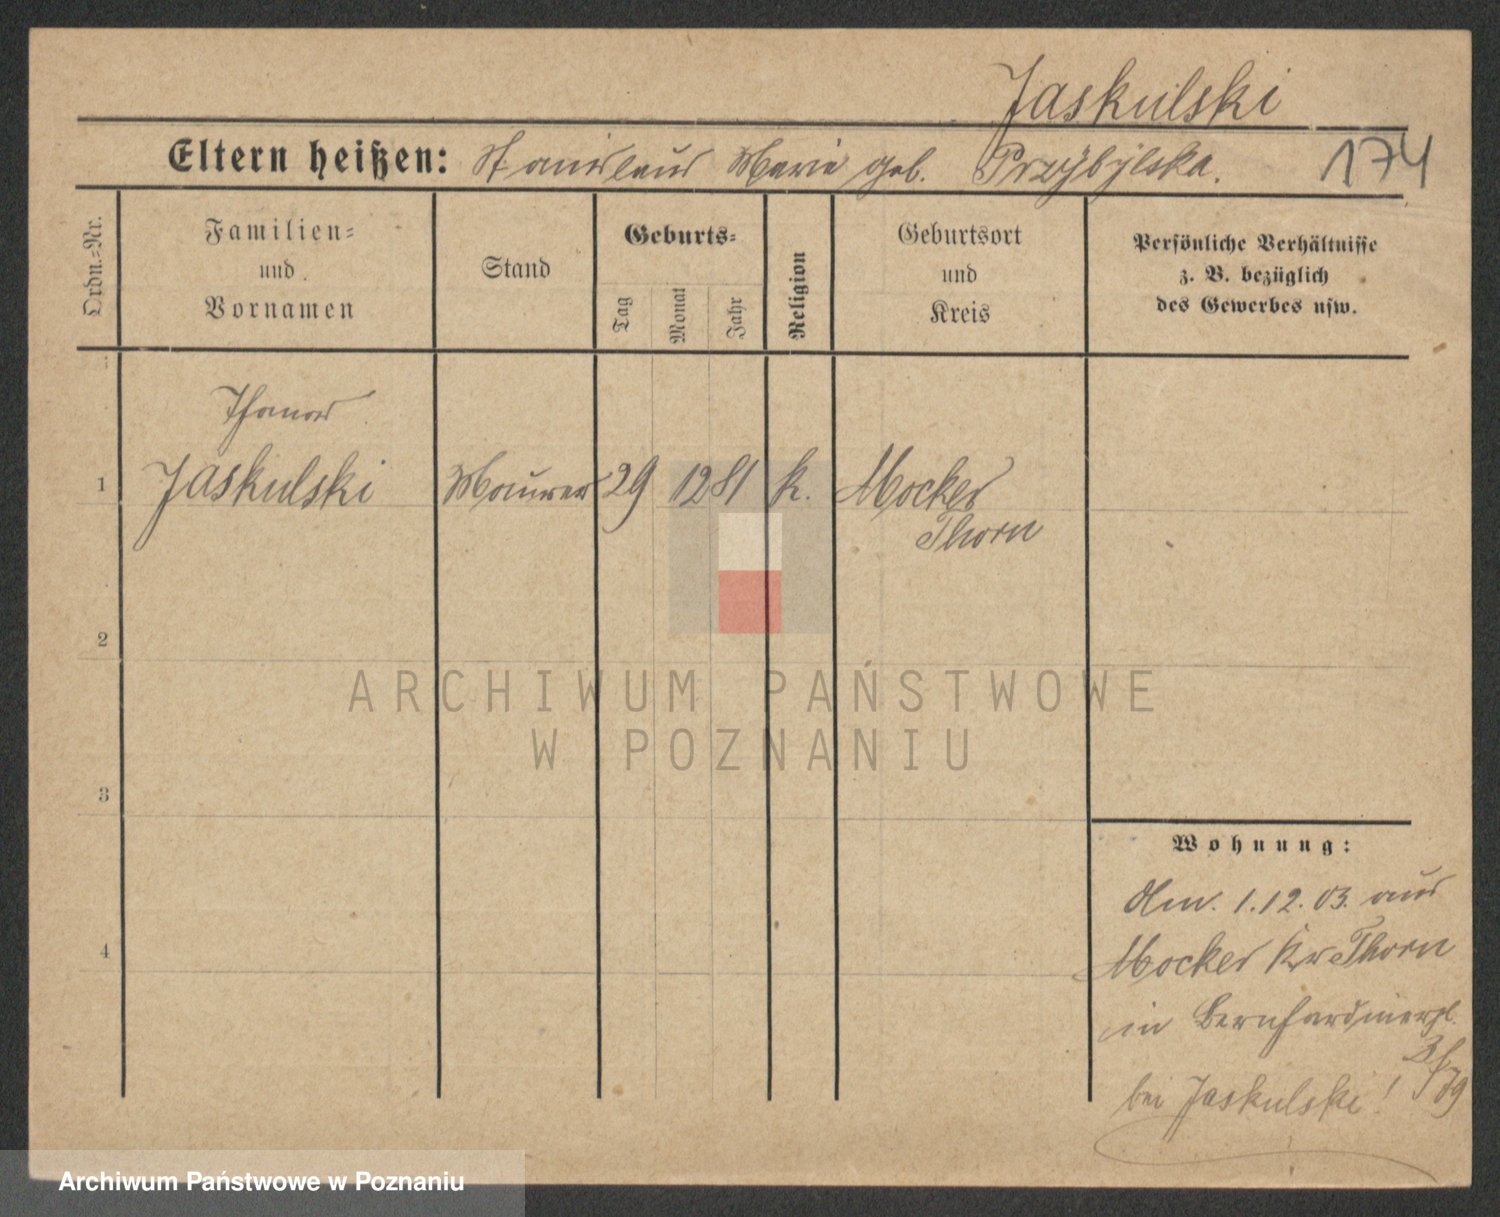 Jaskulski
Eltern heißen: Stanislaus Marie geb. Przybylska.
174
Ordn.-Nr.
Familien-
und
Vornamen
Stand
Geburts-
Tag
Monat
Jahr
Religion
Geburtsort
und
Kreis
Persönliche Verhältnisse
z. B. bezüglich
des Gewerbes usw.
1
Jaskulski
Maurer
29
12
81
k.
Mocker
Thorn
2
3
4
Wohnung:
1.12.03. aus
Mocker Kr Thorn
in Bernhardinerpl.
bei Jaskulski!
ARCHIWUM PAŃSTWOWE
W POZNANIU
Archiwum Państwowe w Poznaniu